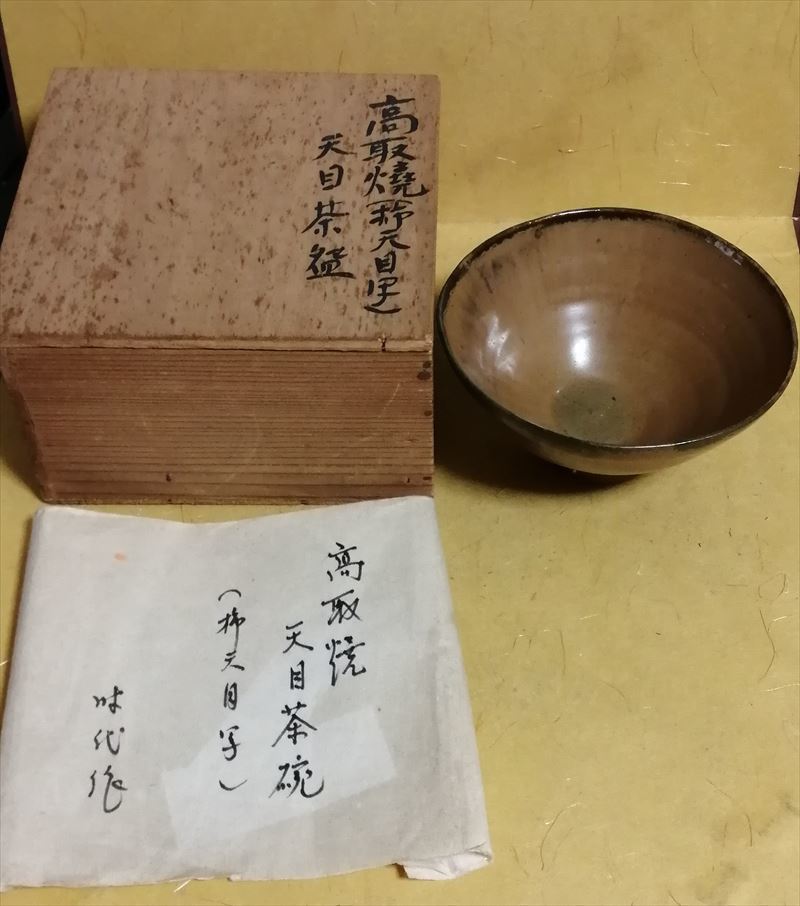 高取燒(柿天目写)
天目茶盌
高取焼
天目茶碗
(柿天目写)
時代作